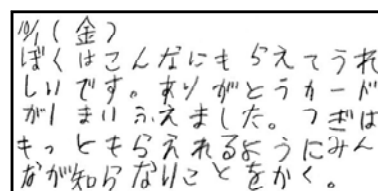 10/1(金)
ぼくはこんなにもらえてうれ
しいです。ありがとうカード
が1まいふえました。つぎは
もっともらえれるようにみん
なが知らないことをかく。